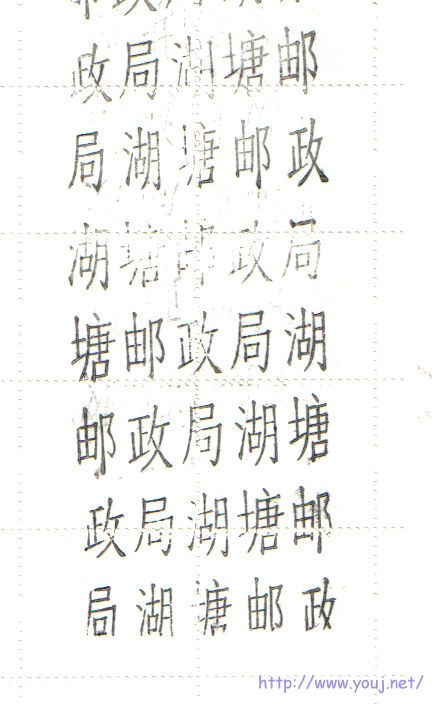 政局湖塘邮
局湖塘邮政
湖塘邮政局
塘邮政局湖
邮政局湖塘
政局湖塘邮
局湖塘邮政
http://www.youj.net/